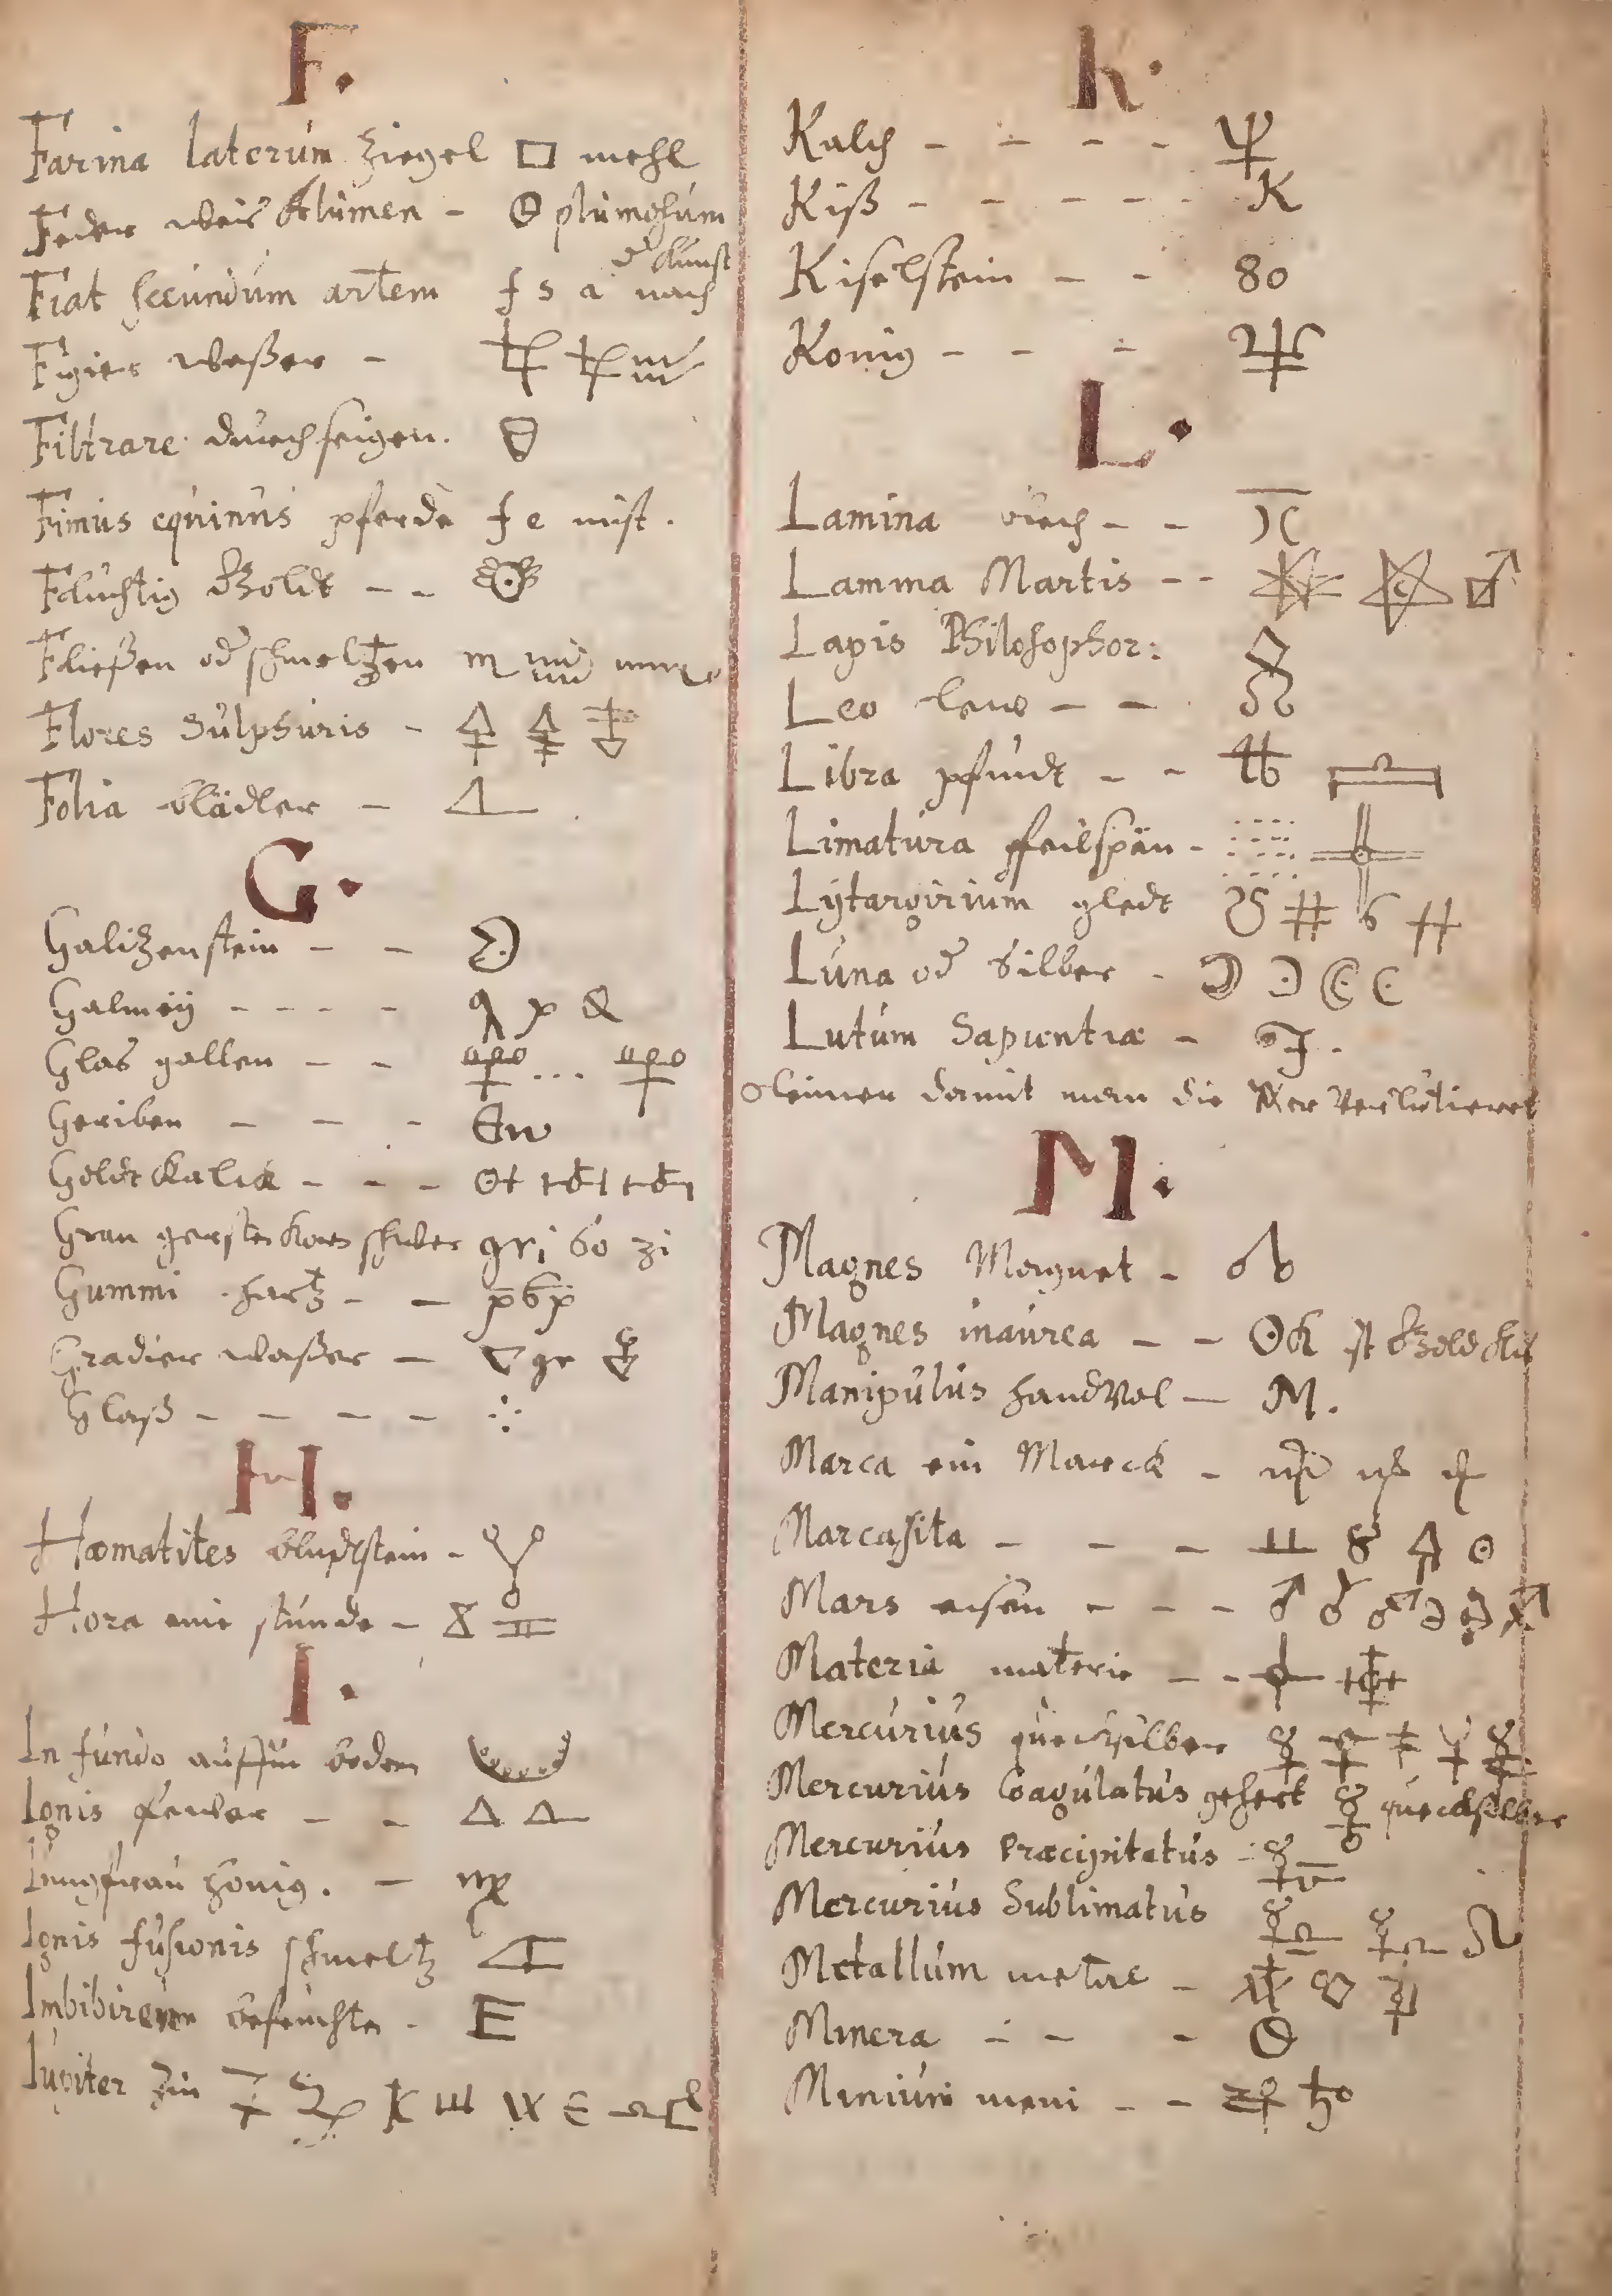 F.
Farina laterum Ziegel □ mehl
Feder weis blumen - plumosum
der Kunst
Fiat secundum artem f s a nach
Figier waßer -
Filtrare durchseigen.
Fimus equinus pferde f e mist.
Fluchtig Goldt - -
Fließen od schmeltzen
Flores Sulphuris -
Folia blädler -
G.
Galitzenstein - -
Galmeÿ - - - -
Glas gallen - -
Geriben - - -
Goldt Kalck - - -
Gran gersten Korn gri 60 zi
Gummi hartz - -
Gradier waßer - ▽ gr
Glaß - - - -
H.
Hæmatites bludtstein -
Hora eine stunde -
I.
In fundo auff bodem
Ignis feuer - - △
Jungfrau honig. -
Ignis fusionis schmeltz
Imbibiren befeuchten - E
Iupiter Zin
K.
Kalch - - - -
Kiß - - - - - K
Kiselstein - - 80
Konig - - -
L.
Lamina blech - -
Lamina Martis - - ♂
Lapis Philosophor:
Leo leuw - - ♌
Libra pfundt - -
Limatura pfeilspän -
Lÿtargirium gledt
Luna od Silber - ☽
Lutum Sapientiæ -
leimen damit man die verlutieret
M.
Magnes Magnet -
Magnes inaurea - - ☉K ist Gold Kis
Manipulus handvol - M.
Marca ein Marck -
Marcasita - - -
Mars eisen - - - ♂
Materia materie - -
Mercurius quecksilber ☿
Mercurius Coagulatus gehert ☿ quecksilber
Mercurius Præcipitatus - ☿
Mercurius Sublimatus ☿
Metallum metal -
Minera - - -
Minium meni - -